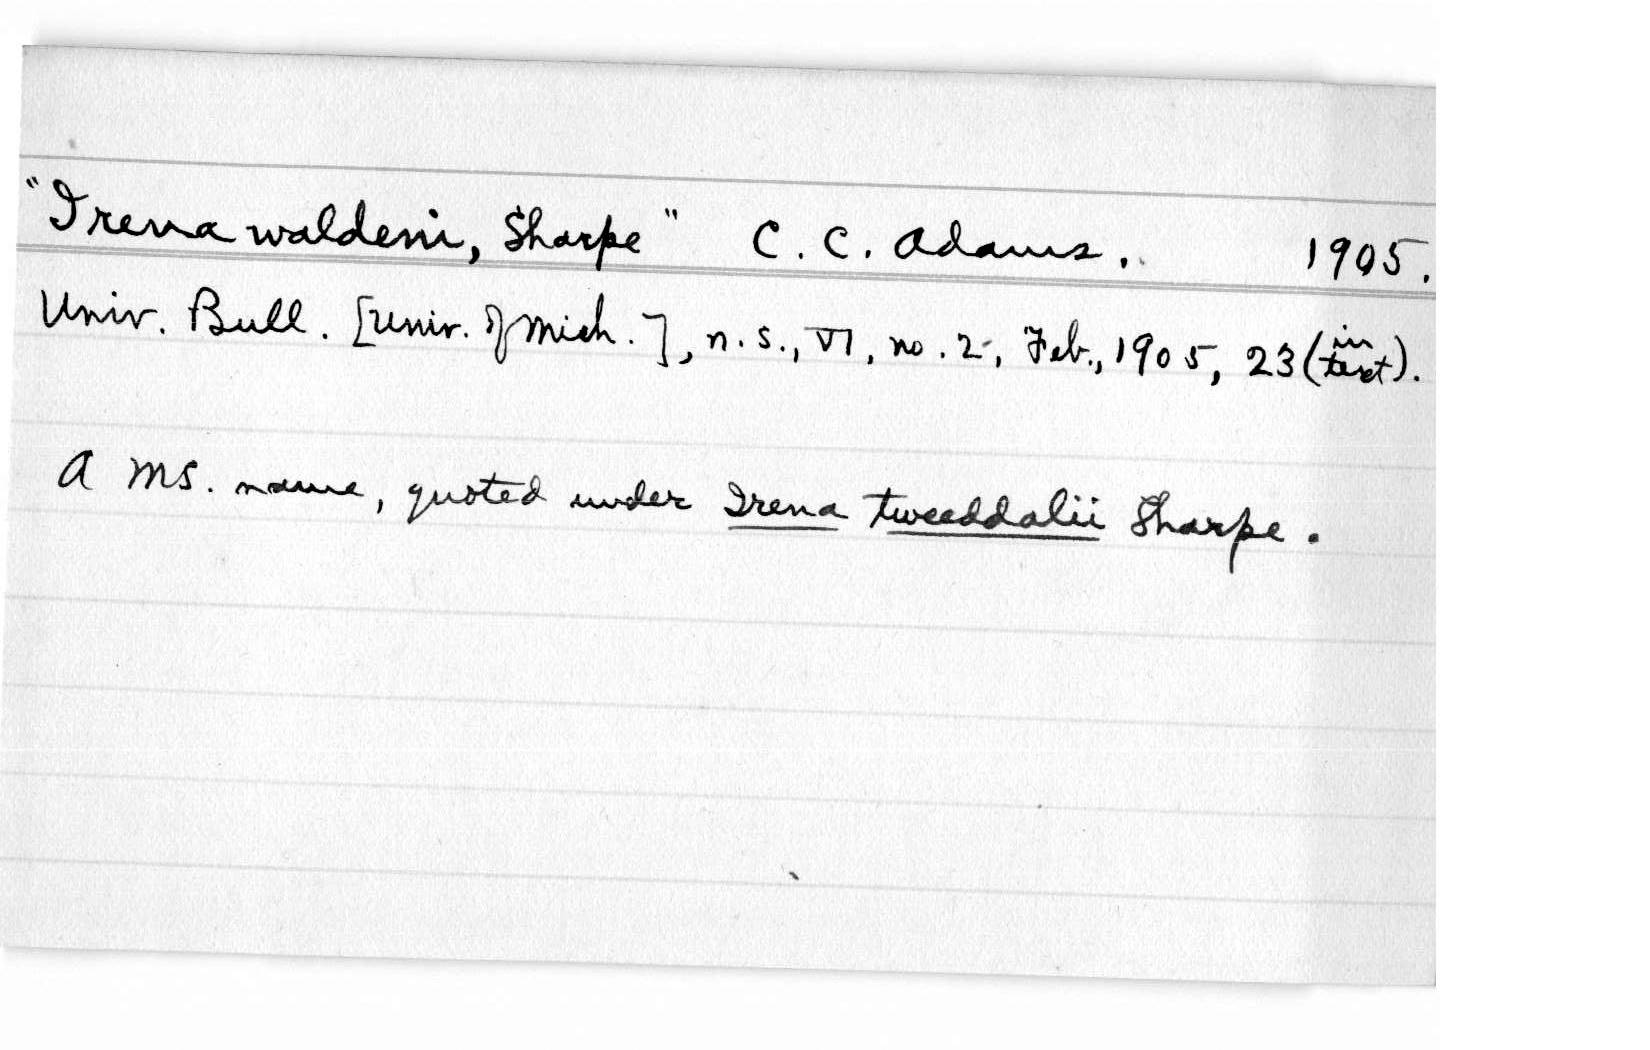 "Irena waldeni, Sharpe" C. C. Adams. 1905.
Univ. Bull. [Univ. of Mich.], n.s., VI, no. 2, Feb., 1905, 23 (in text).
A MS. name, quoted under Irena tweeddalii Sharpe.